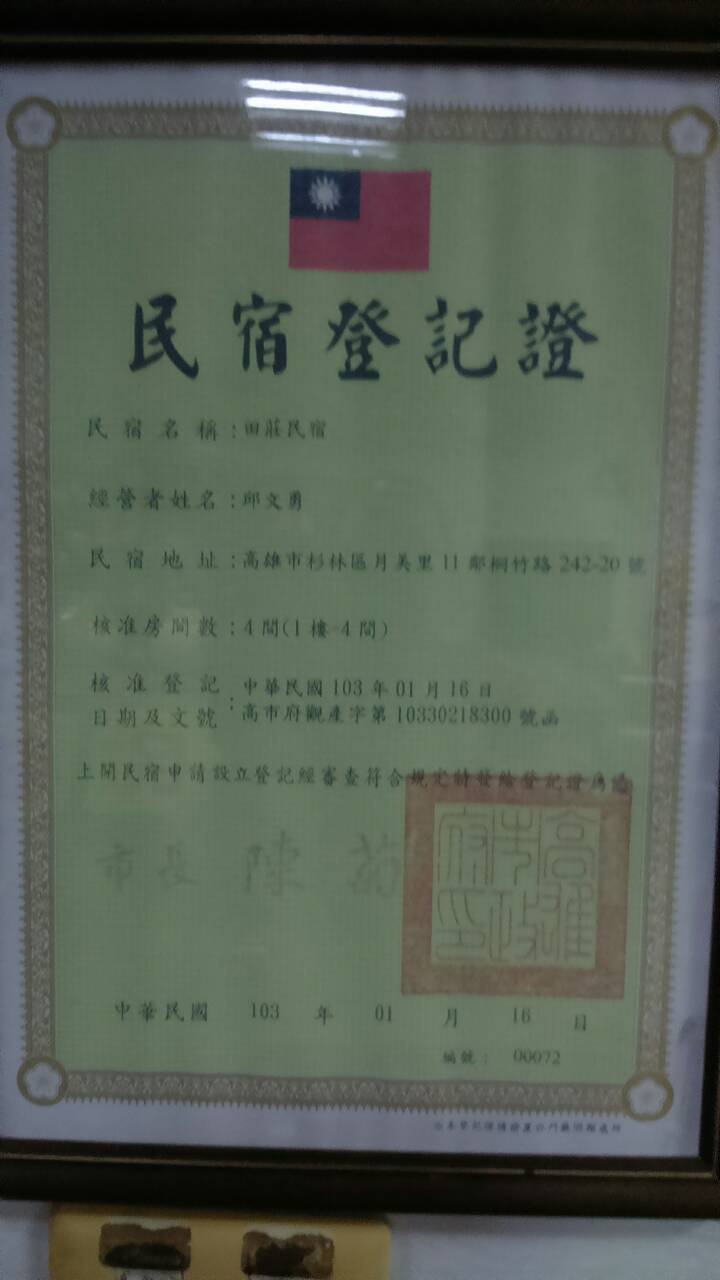 民宿登記證
民宿名稱：田莊民宿
經營者姓名：邱文勇
民宿地址：高雄市杉林區月美里11鄰桐竹路242-20號
核准房間數：4間(1樓-4間)
核准登記
日期及文號：
中華民國103年01月16日
高市府觀產字第10330218300號函
上開民宿申請設立登記經審查符合規定特發給登記證為憑
市長 陳菊
高雄市政府印
中華民國 103 年 01 月 16 日
編號： 00072